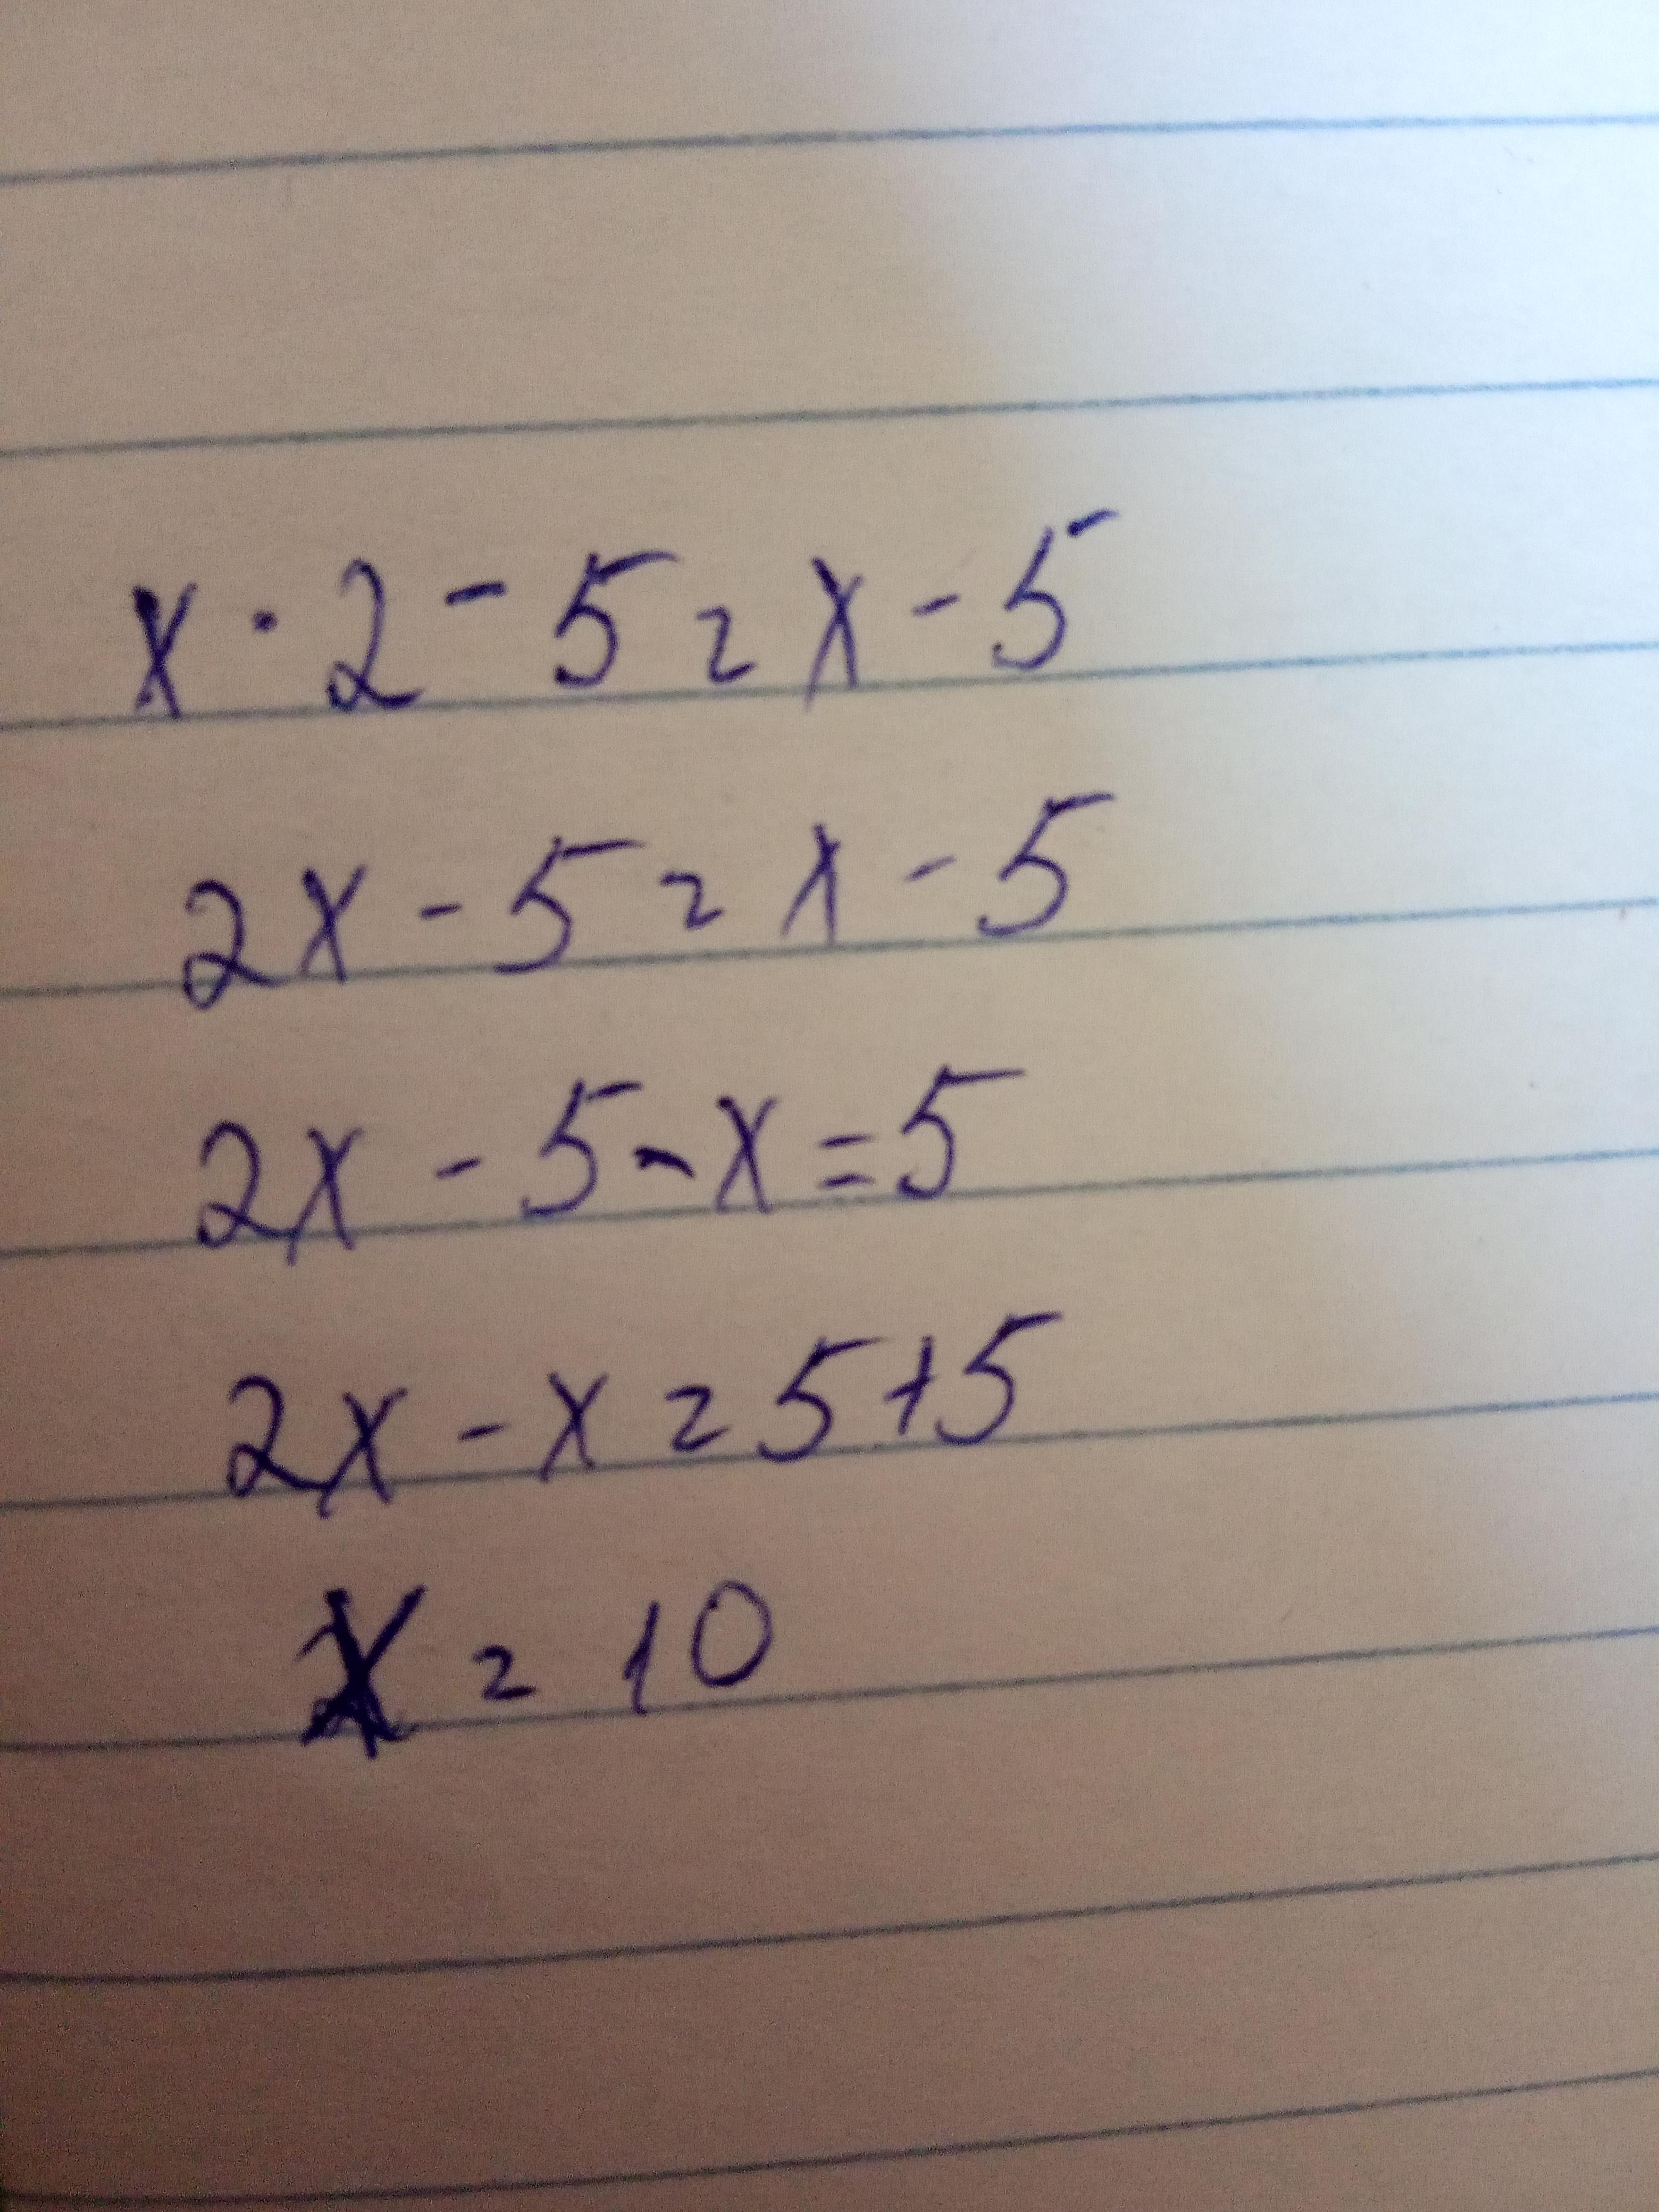 x · 2 - 5 = x - 5
2x - 5 = x - 5
2x - 5 - x = 5
2x - x = 5 + 5
x = 10